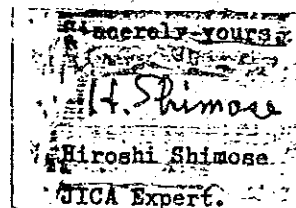 Sincerely yours,
H. Shimose
Hiroshi Shimose
JICA Expert.